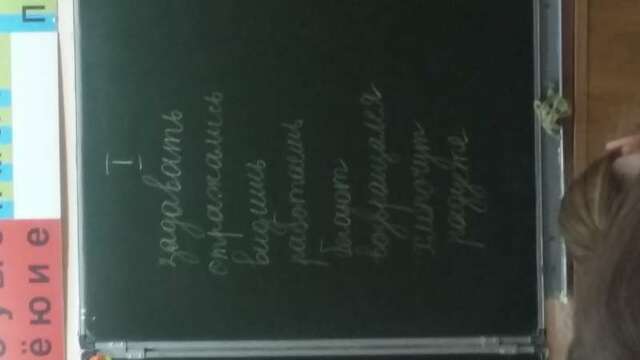 I
задавать
отражались
видишь
работаешь
возвращался
хлопочут
радуже
ё ю и е
п